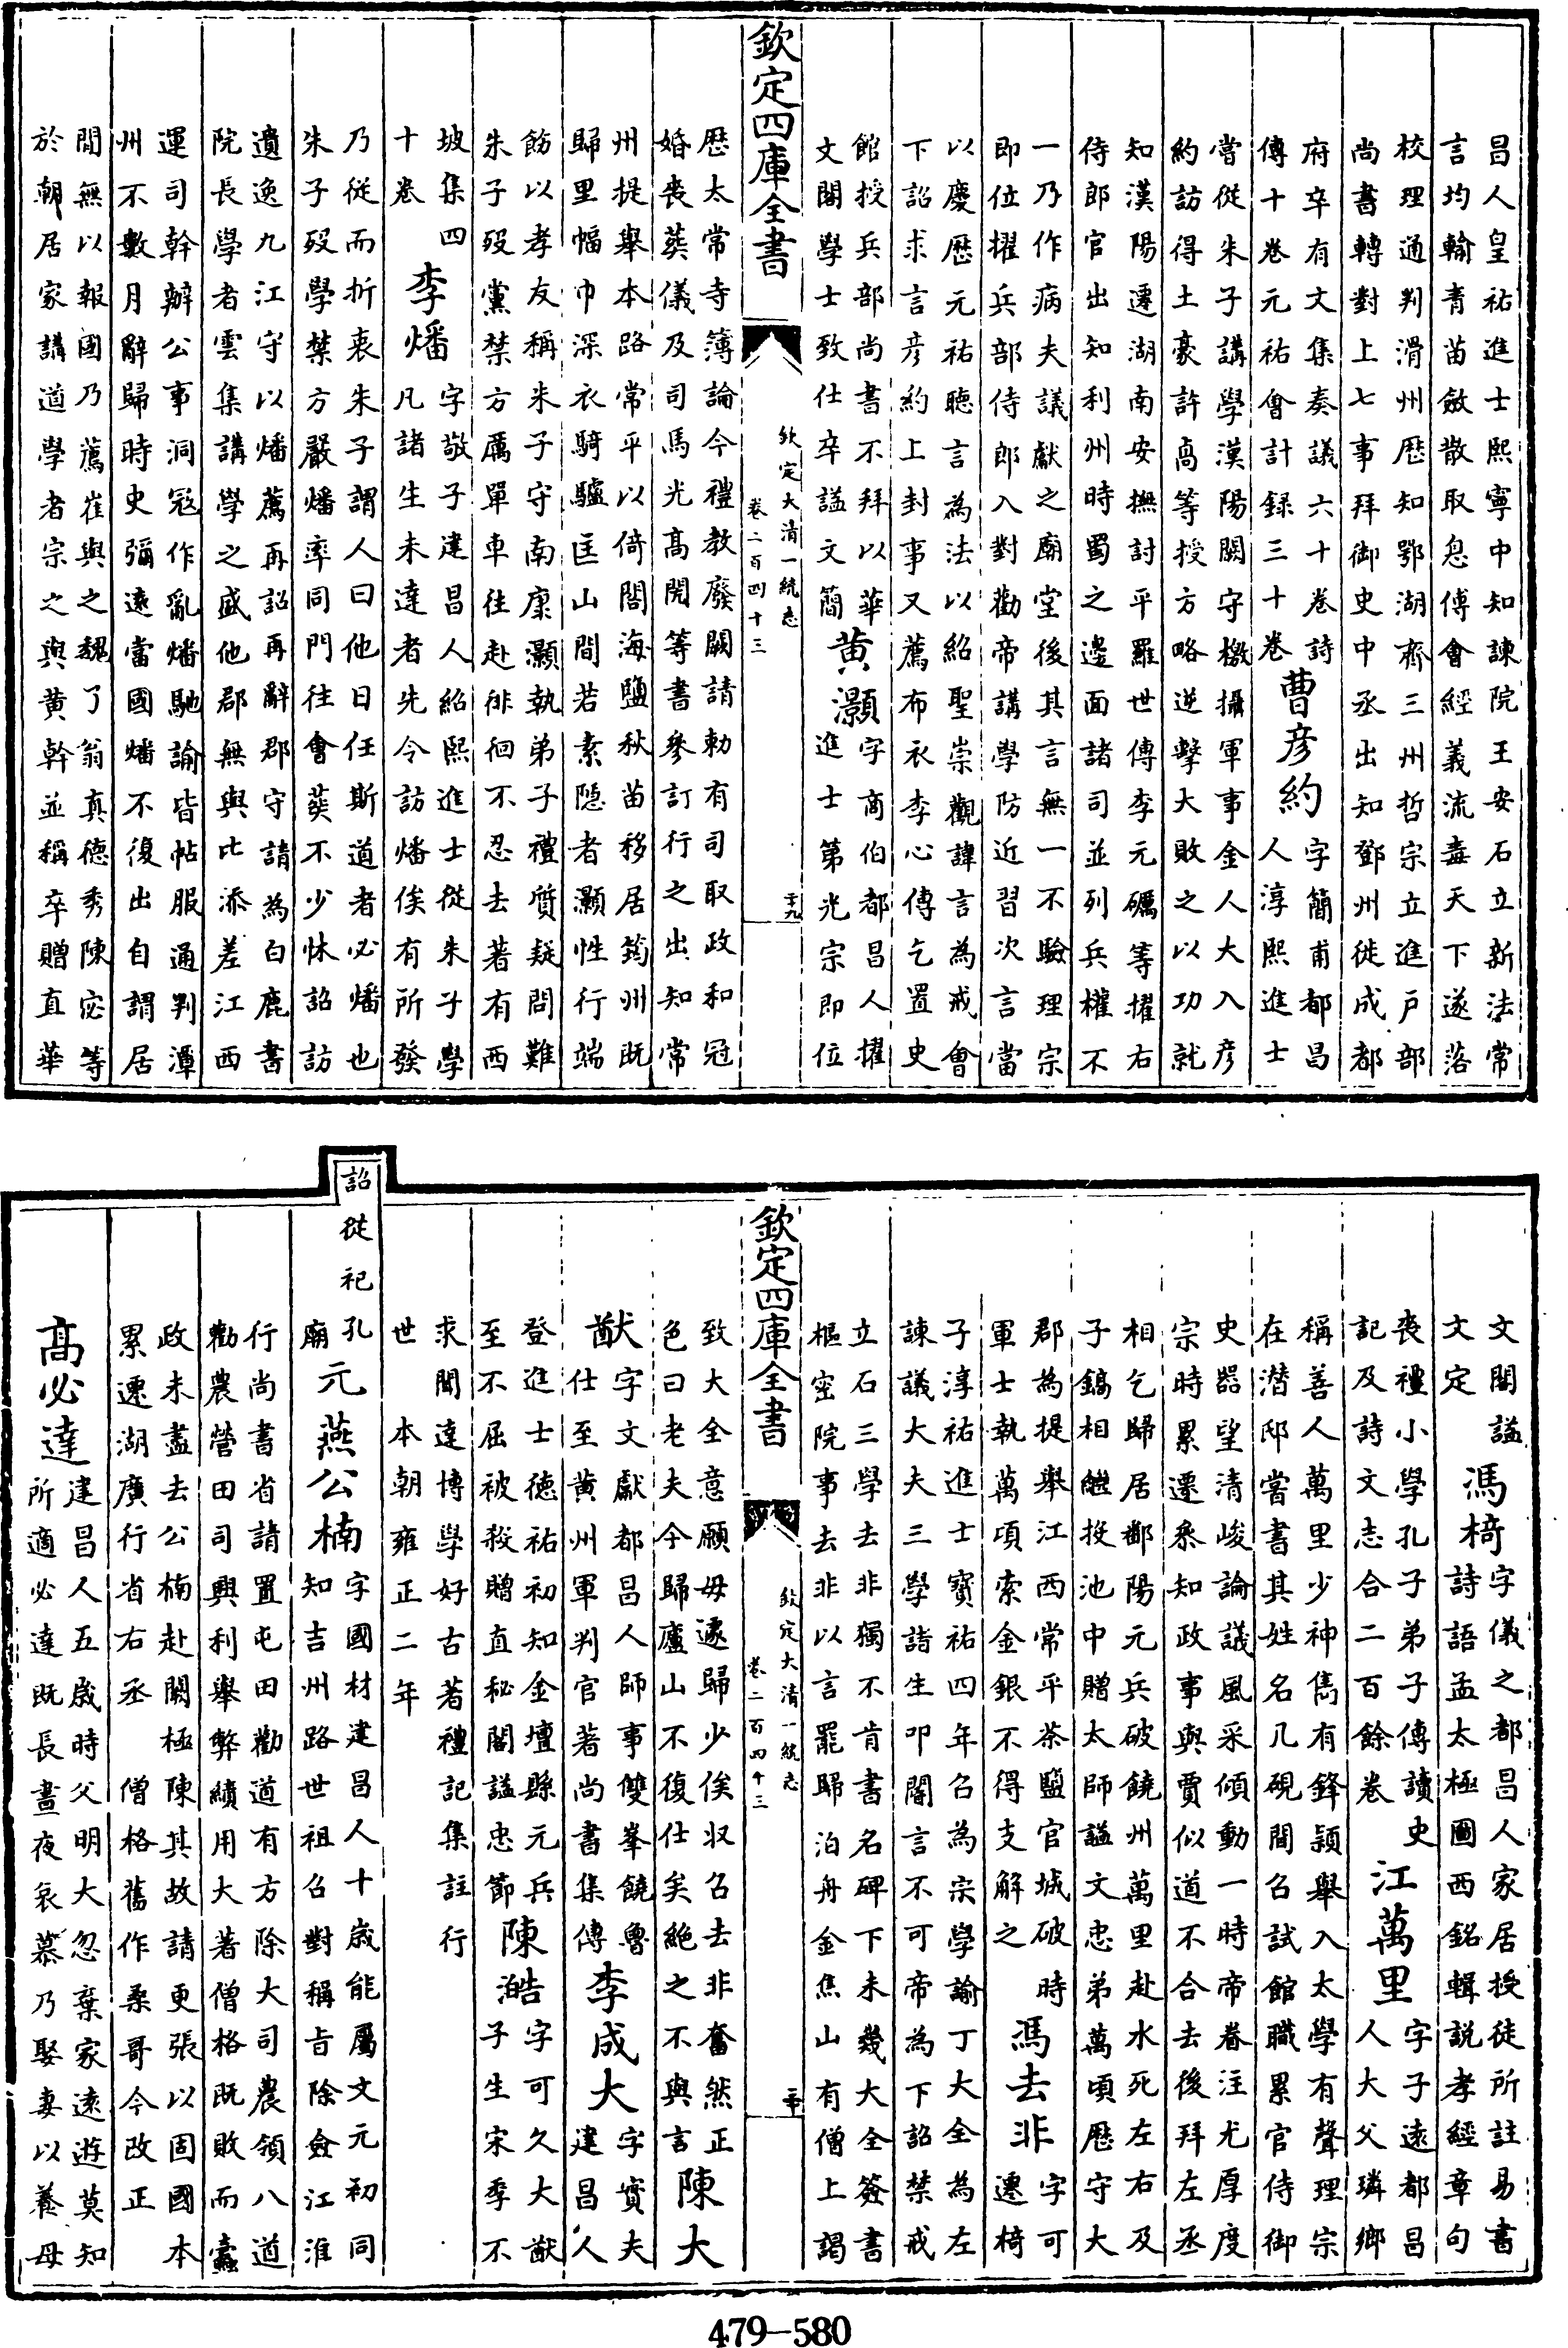 昌人皇祐進士熙寧中知諫院王安石立新法常
言均輸青苗斂散取息傅會經義流毒天下遂落
校理通判滑州歴知鄂湖齊三州哲宗立進戸部
尚書轉對上七事拜御史中丞出知鄧州徙成都
府卒有文集奏議六十卷詩
傳十卷元祐會計録三十卷
曹彦約
字簡甫都昌
人淳熙進士
嘗從朱子講學漢陽闕守檄攝軍事金人大入彦
約訪得土豪許卨等授方略逆擊大敗之以功就
知漢陽遷湖南安撫討平羅世傳李元礪等擢右
侍郎官出知利州時蜀之邊面諸司並列兵權不
一乃作病夫議獻之廟堂後其言無一不驗理宗
即位擢兵部侍郎入對勸帝講學防近習次言當
以慶歴元祐聽言為法以紹聖崇觀諱言為戒會
下詔求言彦約上封事又薦布衣李心傳乞置史
館授兵部尚書不拜以華
文閣學士致仕卒諡文簡
黄灝
字商伯都昌人擢
進士第光宗即位
欽定四庫全書
欽定大清一統志
卷二百四十三
二十九
歴太常寺簿論今禮教廢闕請勅有司取政和冠
婚喪葬儀及司馬光高閌等書參訂行之出知常
州提舉本路常平以倚閣海鹽秋苗移居筠州既
歸里幅巾深衣騎驢匡山間若素隱者灝性行端
飭以孝友稱朱子守南康灝執弟子禮質疑問難
朱子殁黨禁方厲單車往赴徘徊不忍去著有西
坡集四
十卷
李燔
字敬子建昌人紹熙進士從朱子學
凡諸生未達者先令訪燔俟有所發
乃從而折衷朱子謂人曰他日任斯道者必燔也
朱子殁學禁方嚴燔率同門往會葬不少怵詔訪
遺逸九江守以燔薦再詔再辭郡守請為白鹿書
院長學者雲集講學之盛他郡無與比添差江西
運司幹辦公事洞冦作亂燔馳諭皆帖服通判潭
州不數月辭歸時史彌遠當國燔不復出自謂居
閒無以報國乃薦崔與之魏了翁真德秀陳宓等
於朝居家講道學者宗之與黄幹並稱卒贈直華
文閣諡
文定
馮椅
字儀之都昌人家居授徒所註易書
詩語孟太極圖西銘輯説孝經章句
喪禮小學孔子弟子傳讀史
記及詩文志合二百餘卷
江萬里
字子遠都昌
人大父璘鄉
稱善人萬里少神雋有鋒穎舉入太學有聲理宗
在潛邸嘗書其姓名几硯間召試館職累官侍御
史器望清峻論議風采傾動一時帝眷注尤厚度
宗時累遷參知政事與賈似道不合去後拜左丞
相乞歸居鄱陽元兵破饒州萬里赴水死左右及
子鎬相繼投池中贈太師諡文忠弟萬頃歴守大
郡為提舉江西常平茶鹽官城破時
軍士執萬頃索金銀不得支解之
馮去非
字可
遷椅
子淳祐進士寳祐四年召為宗學諭丁大全為左
諫議大夫三學諸生叩閽言不可帝為下詔禁戒
立石三學去非獨不肯書名碑下未幾大全簽書
樞宻院事去非以言罷歸泊舟金焦山有僧上謁
欽定四庫全書
欽定大清一統志
卷二百四十三
三十
致大全意願毋遽歸少俟収召去非奮然正
色曰老夫今歸廬山不復仕矣絶之不與言
陳大
猷
字文獻都昌人師事雙峯饒魯
仕至黄州軍判官著尚書集傳
李成大
字實夫
建昌人
登進士德祐初知金壇縣元兵
至不屈被殺贈直秘閣諡忠節
陳澔
字可久大猷
子生宋季不
求聞達博學好古著禮記集註行
世 本朝雍正二年
詔從祀孔
廟
元
燕公楠
字國材建昌人十歳能屬文元初同
知吉州路世祖召對稱旨除僉江淮
行尚書省請置屯田勸道有方除大司農領八道
勸農營田司興利舉弊績用大著僧格既敗而蠧
政未盡去公楠赴闕極陳其故請更張以固國本
累遷湖廣行省右丞 僧格舊作桑哥今改正
高必達
建昌人五歳時父明大忽棄家遠遊莫知
所適必達既長晝夜哀慕乃娶妻以養母
479—580